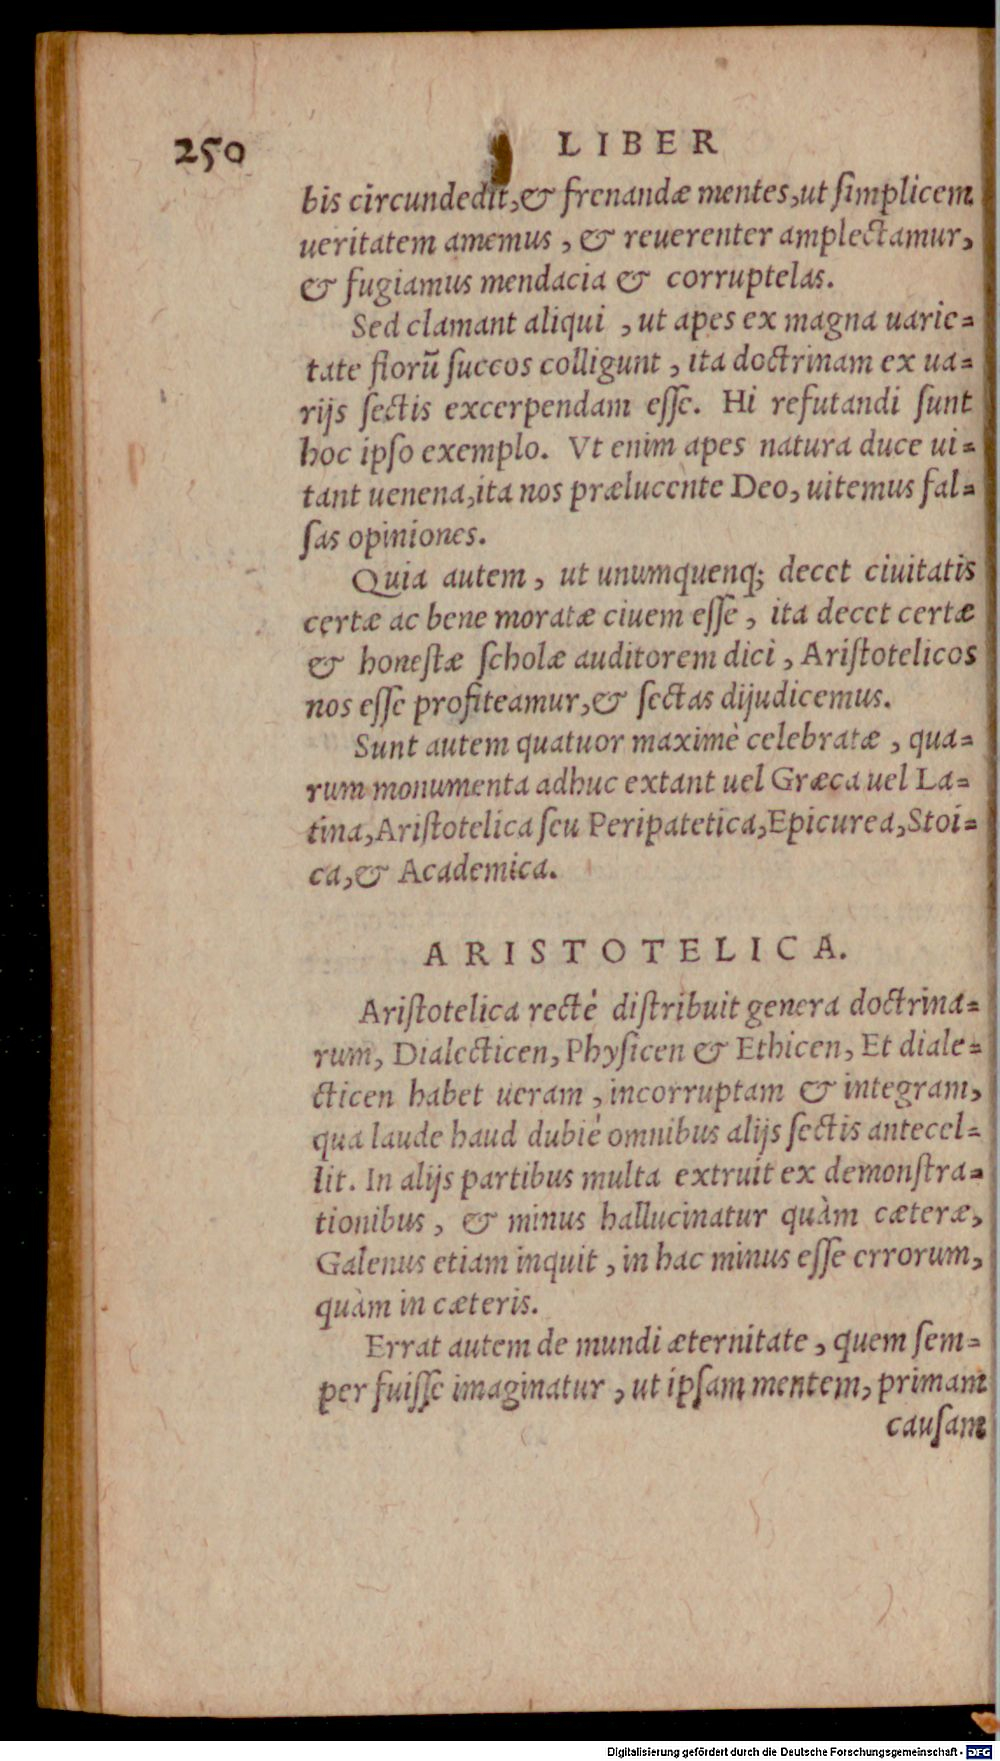 250 LIBER
bis circundedit,& frenandæ mentes,ut ſimplicem
ueritatem amemus , & reuerenter amplectamur,
& fugiamus mendacia & corruptelas.
Sed clamant aliqui , ut apes ex magna uarie=
tate florū ſuccos colligunt , ita doctrinam ex ua=
rijs ſectis excerpendam eſſe. Hi refutandi ſunt
hoc ipſo exemplo. Vt enim apes natura duce ui=
tant uenena,ita nos prælucente Deo, uitemus fal=
ſas opiniones.
Quia autem , ut unumquenq; decet ciuitatis
certæ ac bene moratæ ciuem eſſe , ita decet certæ
& honeſtæ ſcholæ auditorem dici , Ariſtotelicos
nos eſſe profiteamur,& ſectas dijudicemus.
Sunt autem quatuor maximè celebratæ , qua=
rum monumenta adhuc extant uel Græca uel La=
tina,Ariſtotelica ſeu Peripatetica,Epicurea,Stoi=
ca,& Academica.
ARISTOTELICA.
Ariſtotelica recté diſtribuit genera doctrina=
rum, Dialecticen, Phyſicen & Ethicen, Et diale=
cticen habet ueram , incorruptam & integram,
qua laude haud dubié omnibus alijs ſectis antecel=
lit. In alijs partibus multa extruit ex demonſtra=
tionibus , & minus hallucinatur quàm cæteræ,
Galenus etiam inquit , in hac minus eſſe errorum,
quàm in cæteris.
Errat autem de mundi æternitate , quem ſem=
per fuiſſe imaginatur , ut ipſam mentem, primam
cauſam
Digitalisierung gefördert durch die Deutsche Forschungsgemeinschaft - DFG